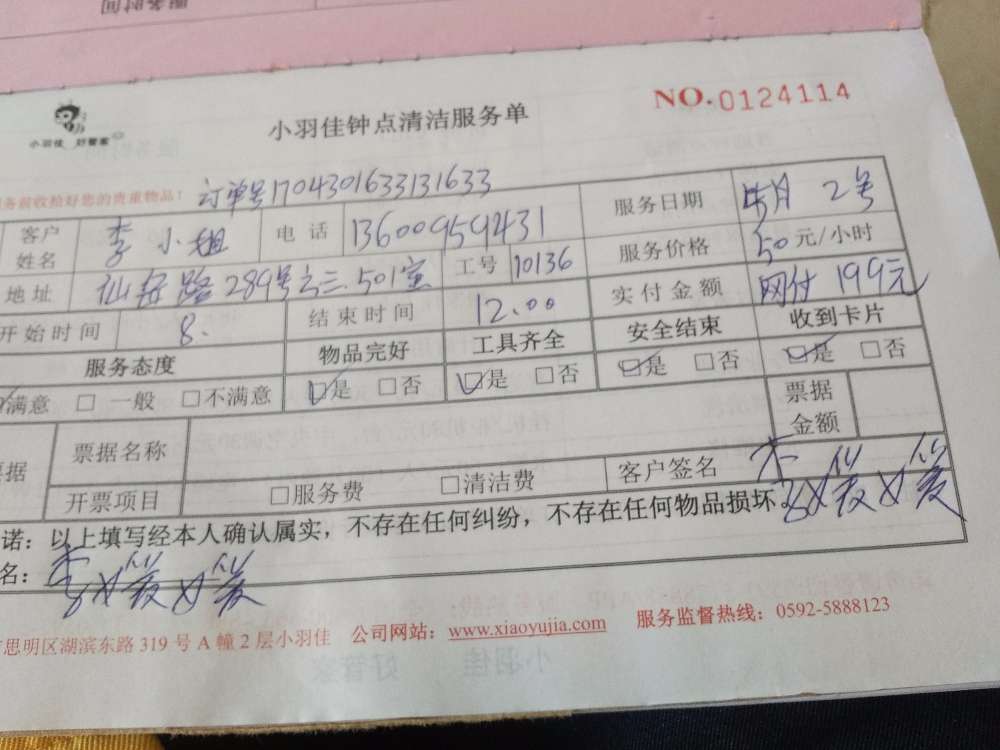 服务时间
小羽佳 好管家
小羽佳钟点清洁服务单
NO.0124114
务前收检好您的贵重物品！ 订单号1704301633131633
客户姓名 李小姐 电话 13600959431 服务日期 4月2号
地址 仙岳路289号之三.501室 工号 10136 服务价格 50元/小时
开始时间 8. 结束时间 12.00 实付金额 网付199元
服务态度 物品完好 工具齐全 安全结束 收到卡片
满意 □一般 □不满意 ☑是 □否 ☑是 □否 ☑是 □否 ☑是 □否
票据名称 票据金额
据 开票项目 □服务费 □清洁费 客户签名 李
诺：以上填写经本人确认属实，不存在任何纠纷，不存在任何物品损坏。
名：李
思明区湖滨东路319号A幢2层小羽佳 公司网站：www.xiaoyujia.com 服务监督热线：0592-5888123